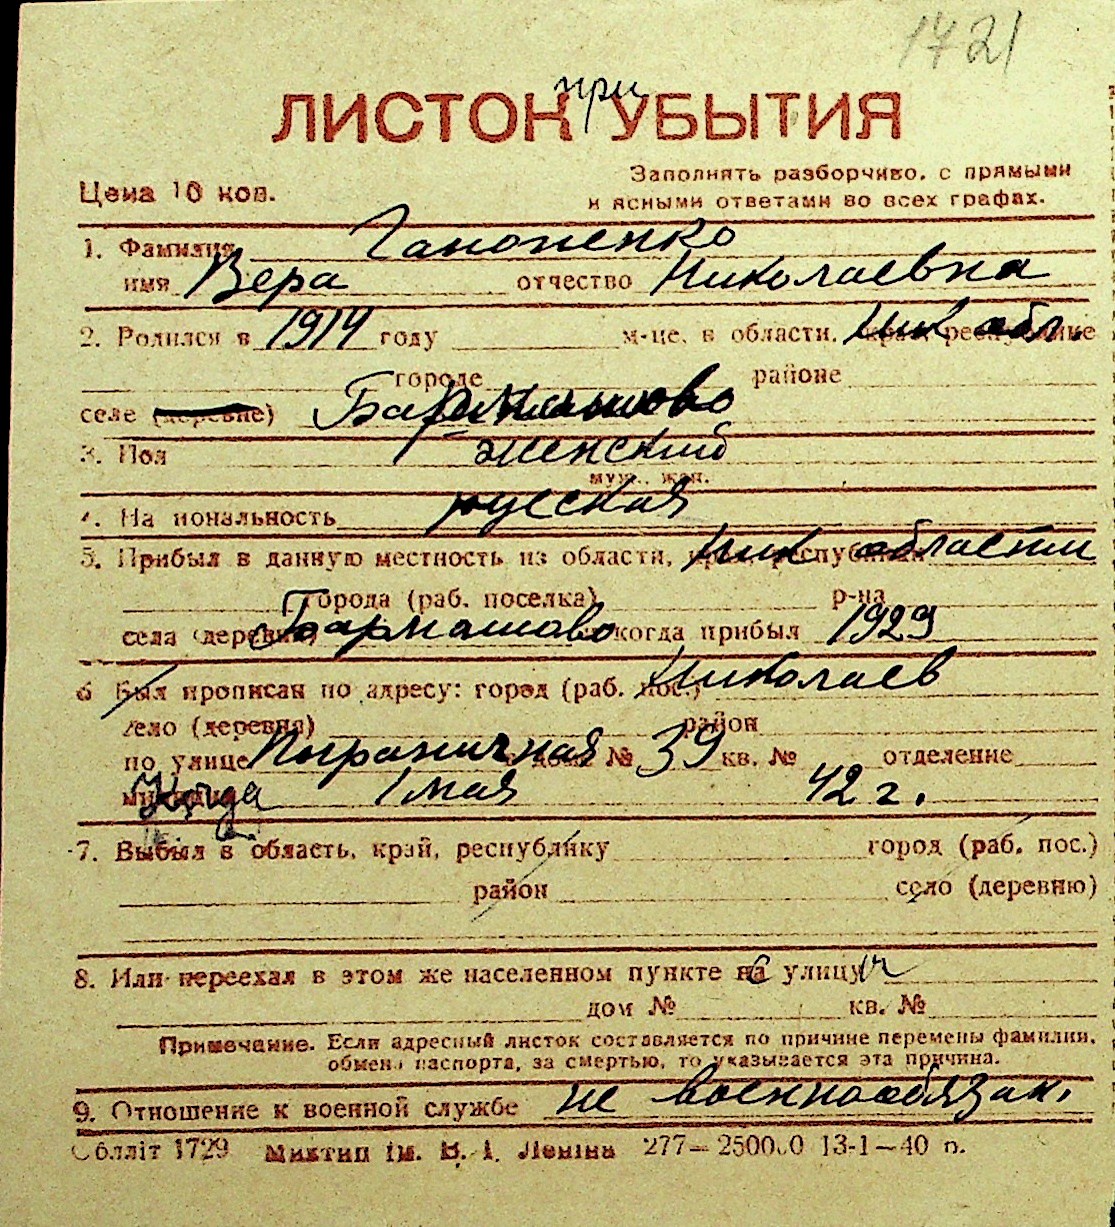 1721
при
ЛИСТОК УБЫТИЯ
Цена 10 коп.
Заполнять разборчиво, с прямыми
и ясными ответами во всех графах.
1. Фамилия Гапоненко
имя Вера отчество Николаевна
2. Родился в 1914 году м-це, в области, край, республике Ник обл.
городе районе
селе (деревне) Бармашово
3. Пол женский
муж., жен.
4. Национальность русская
5. Прибыл в данную местность из области, края, республики Ник области
города (раб. поселка) р-на
села (деревни) Бармашово и когда прибыл 1929
6 Был прописан по адресу: город (раб. пос.) Николаев
село (деревня) район
по улице Пограничная дом № 39 кв. № отделение
милиции Когда 1 мая 42 г.
7. Выбыл в область, край, республику город (раб. пос.)
район село (деревню)
8. Или переехал в этом же населенном пункте на улицу
дом № кв. №
Примечание. Если адресный листок составляется по причине перемены фамилии,
обмена паспорта, за смертью, то указывается эта причина.
9. Отношение к военной службе не военнообязан.
Облліт 1729 Миктип ім. В. І. Леніна 277—250000 13-1—40 п.